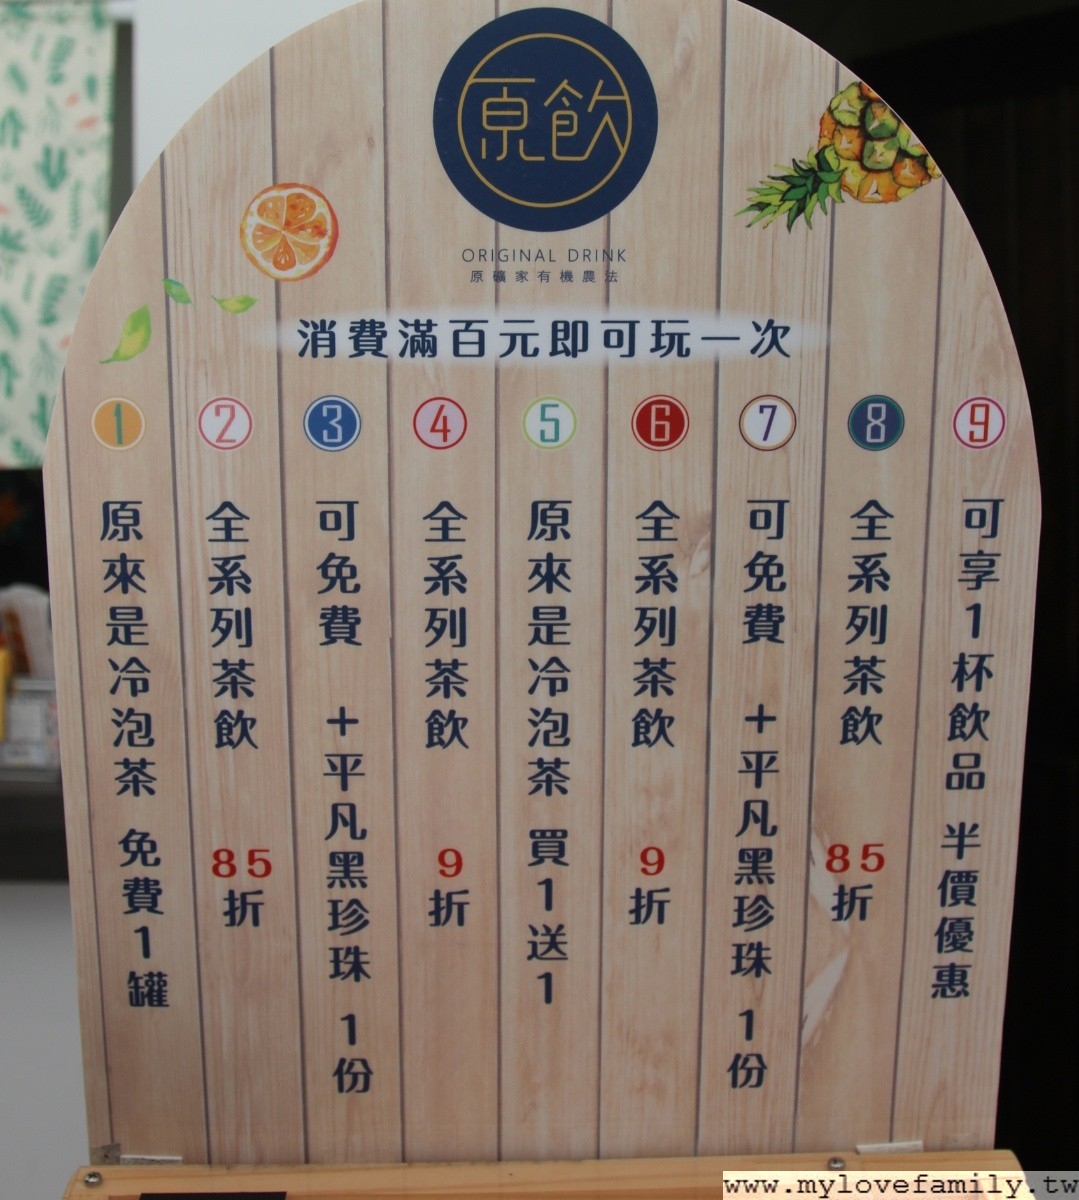 原飲
ORIGINAL DRINK
原礦家有機農法
消費滿百元即可玩一次
1
原來是冷泡茶 免費1罐
2
全系列茶飲 85折
3
可免費 +平凡黑珍珠 1份
4
全系列茶飲 9折
5
原來是冷泡茶 買1送1
6
全系列茶飲 9折
7
可免費 +平凡黑珍珠 1份
8
全系列茶飲 85折
9
可享1杯飲品 半價優惠
www.mylovefamily.tw